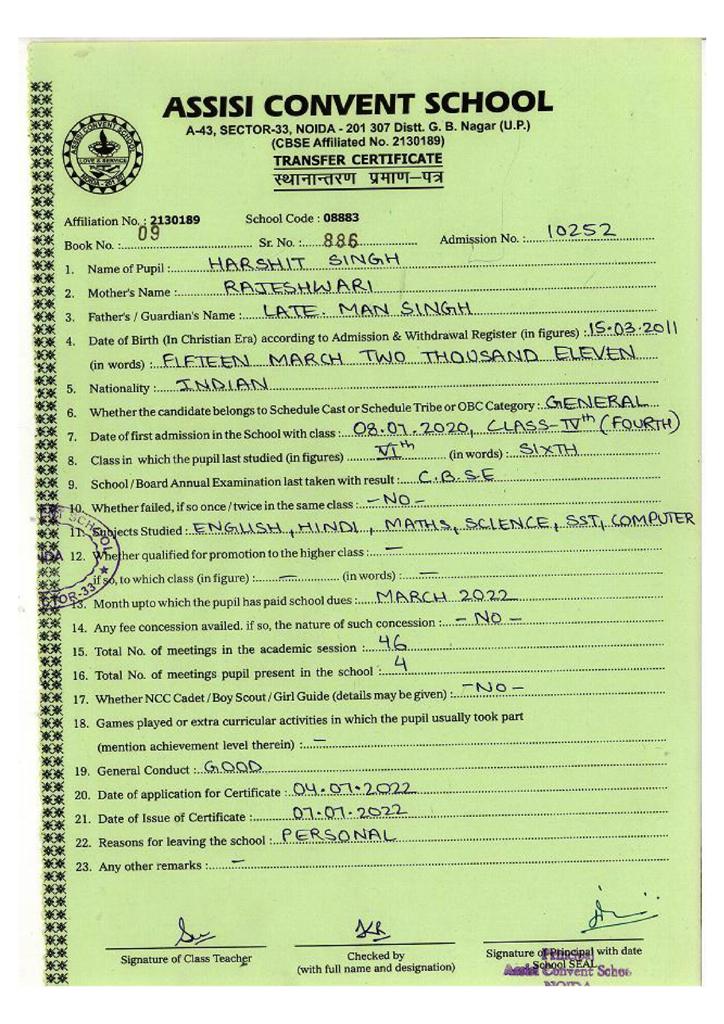 ASSISI CONVENT SCHOOL
A-43, SECTOR-33, NOIDA - 201 307 Distt. G. B. Nagar (U.P.)
(CBSE Affiliated No. 2130189)
TRANSFER CERTIFICATE
स्थानान्तरण प्रमाण–पत्र
ASSISI CONVENT SCHOOL
LOVE & SERVICE
NOIDA - 201 307
Affiliation No. : 2130189 School Code : 08883
Book No. : 09 Sr. No. : 886 Admission No. : 10252
1. Name of Pupil : HARSHIT SINGH
2. Mother's Name : RAJESHWARI
3. Father's / Guardian's Name : LATE. MAN SINGH
4. Date of Birth (In Christian Era) according to Admission & Withdrawal Register (in figures) : 15.03.2011
(in words) : FIFTEEN MARCH TWO THOUSAND ELEVEN
5. Nationality : INDIAN
6. Whether the candidate belongs to Schedule Cast or Schedule Tribe or OBC Category : GENERAL
7. Date of first admission in the School with class : 08.07.2020, CLASS-IVth (FOURTH)
8. Class in which the pupil last studied (in figures) VIth (in words) : SIXTH
9. School / Board Annual Examination last taken with result : C.B.S.E
10. Whether failed, if so once / twice in the same class : - NO -
11. Subjects Studied : ENGLISH, HINDI, MATHS, SCIENCE, SST, COMPUTER
12. Whether qualified for promotion to the higher class : —
if so, to which class (in figure) : — (in words) : —
13. Month upto which the pupil has paid school dues : MARCH 2022
14. Any fee concession availed. if so, the nature of such concession : - NO -
15. Total No. of meetings in the academic session : 46
16. Total No. of meetings pupil present in the school : 4
17. Whether NCC Cadet / Boy Scout / Girl Guide (details may be given) : - NO -
18. Games played or extra curricular activities in which the pupil usually took part
(mention achievement level therein) : —
19. General Conduct : GOOD
20. Date of application for Certificate : 04.07.2022
21. Date of Issue of Certificate : 07.07.2022
22. Reasons for leaving the school : PERSONAL
23. Any other remarks : —
Signature of Class Teacher
Checked by
(with full name and designation)
Signature of Principal with date
School SEAL
Principal
Assisi Convent School
NOIDA